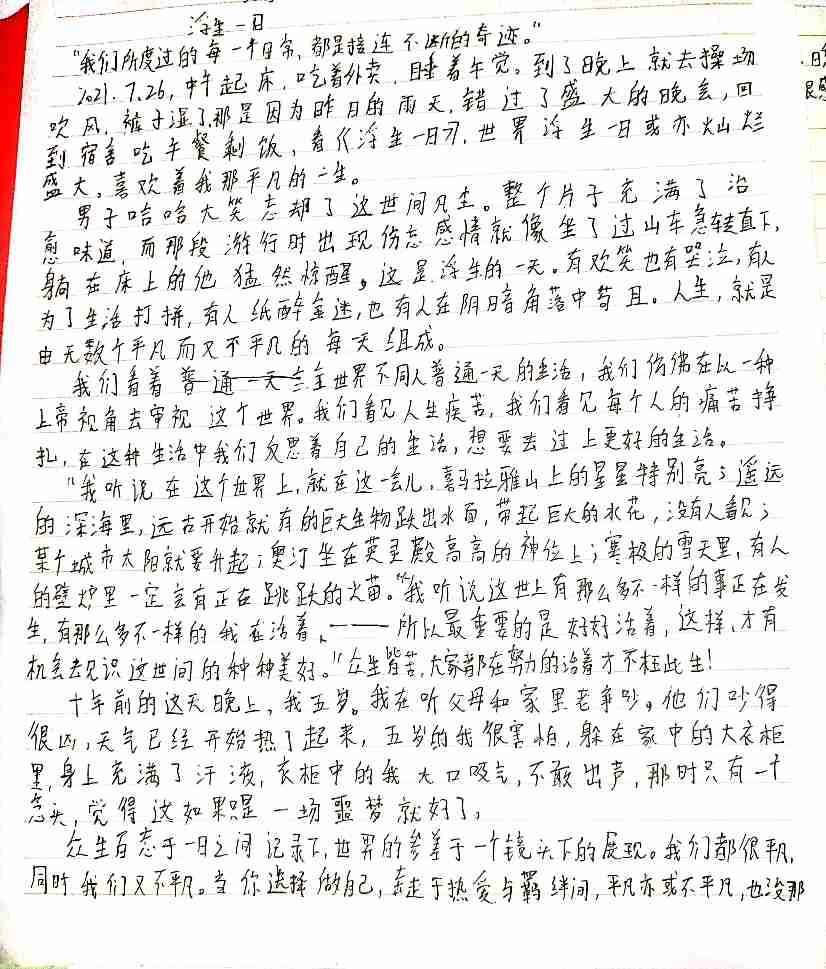 浮生一日
"我们所度过的每一个日常,都是接连不断的奇迹。"
2021.7.26,中午起床,吃着外卖,睡着午觉。到了晚上就去操场
吹风,裤子湿了那是因为昨日的雨天,错过了盛大的晚会,回
到宿舍吃午餐剩饭,看《浮生一日》,世界浮生一日或亦灿烂
盛大,喜欢着我那平凡的一生。
男子哈哈大笑忘却了这世间凡尘。整个片子充满了治
愈味道,而那段游行时出现伤感情就像坐了过山车急转直下,
躺在床上的他猛然惊醒。这是浮生的一天。有欢笑也有哭泣,有人
为了生活打拼,有人纸醉金迷,也有人在阴暗角落中苟且。人生,就是
由无数个平凡而又不平凡的每天组成。
我们看着全世界不同人普通一天的生活,我们仿佛在以一种
上帝视角去审视这个世界。我们看见人生疾苦,我们看见每个人的痛苦挣
扎,在这种生活中我们反思着自己的生活,想要去过上更好的生活。
"我听说在这个世界上,就在这一会儿,喜马拉雅山上的星星特别亮;遥远
的深海里,远古开始就有的巨大生物跃出水面,带起巨大的水花,没有人看见;
某个城市太阳就要升起;奥汀坐在英灵殿高高的神位上;寒极的雪天里,有人
的壁炉里一定会有正在跳跃的火苗。""我听说这世上有那么多不一样的事正在发
生,有那么多不一样的我在活着、——所以最重要的是好好活着,这样,才有
机会去见识这世间的种种美好。"众生皆苦,大家都在努力的活着才不枉此生!
十年前的这天晚上,我五岁。我在听父母和家里老争吵。他们吵得
很凶,天气已经开始热了起来,五岁的我很害怕,躲在家中的大衣柜
里,身上充满了汗液,衣柜中的我大口吸气,不敢出声,那时只有一个
念头,觉得这如果只是一场噩梦就好了,
众生百态于一日之间记录下,世界的参差于一个镜头下的展现。我们都很平凡,
同时我们又不平凡。当你选择做自己,奔走于热爱与羁绊间,平凡亦或不平凡,也没那